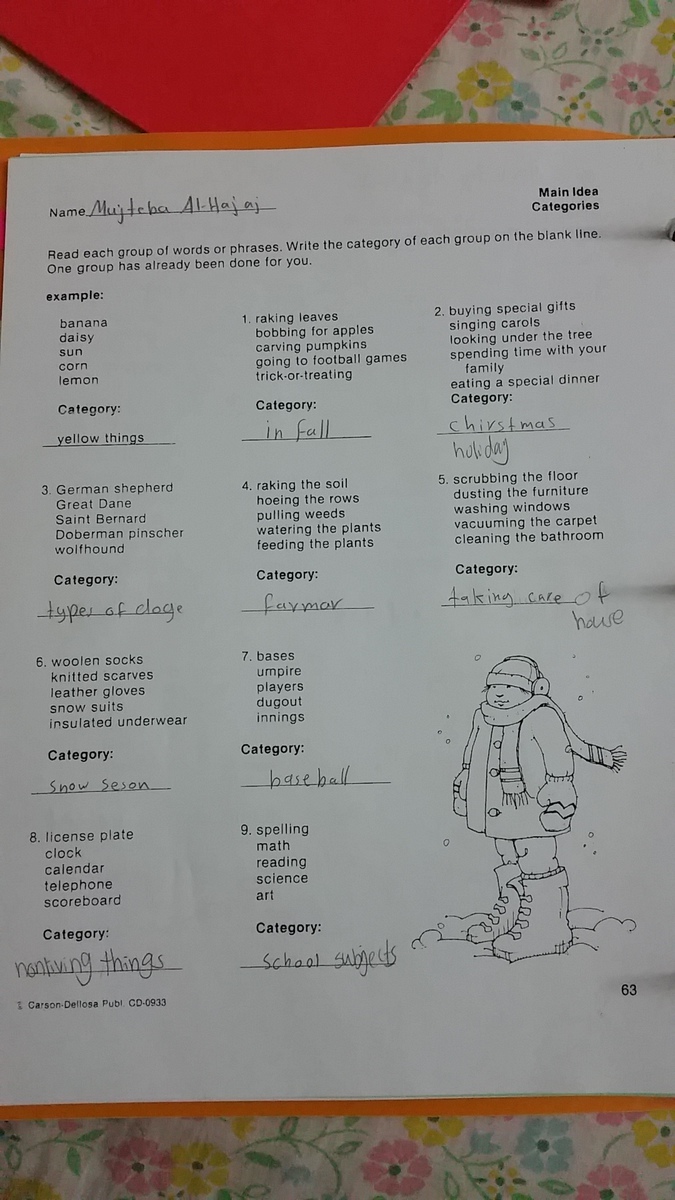 Name Mujteba Al-Hajaj
Main Idea
Categories
Read each group of words or phrases. Write the category of each group on the blank line.
One group has already been done for you.
example:
banana
daisy
sun
corn
lemon
Category:
yellow things
1. raking leaves
bobbing for apples
carving pumpkins
going to football games
trick-or-treating
Category:
in fall
2. buying special gifts
singing carols
looking under the tree
spending time with your
family
eating a special dinner
Category:
chirstmas
holiday
3. German shepherd
Great Dane
Saint Bernard
Doberman pinscher
wolfhound
Category:
types of doge
4. raking the soil
hoeing the rows
pulling weeds
watering the plants
feeding the plants
Category:
farmar
5. scrubbing the floor
dusting the furniture
washing windows
vacuuming the carpet
cleaning the bathroom
Category:
taking care of
house
6. woolen socks
knitted scarves
leather gloves
snow suits
insulated underwear
Category:
snow seson
7. bases
umpire
players
dugout
innings
Category:
baseball
8. license plate
clock
calendar
telephone
scoreboard
Category:
nonliving things
9. spelling
math
reading
science
art
Category:
school subjects
63
Carson-Dellosa Publ. CD-0933